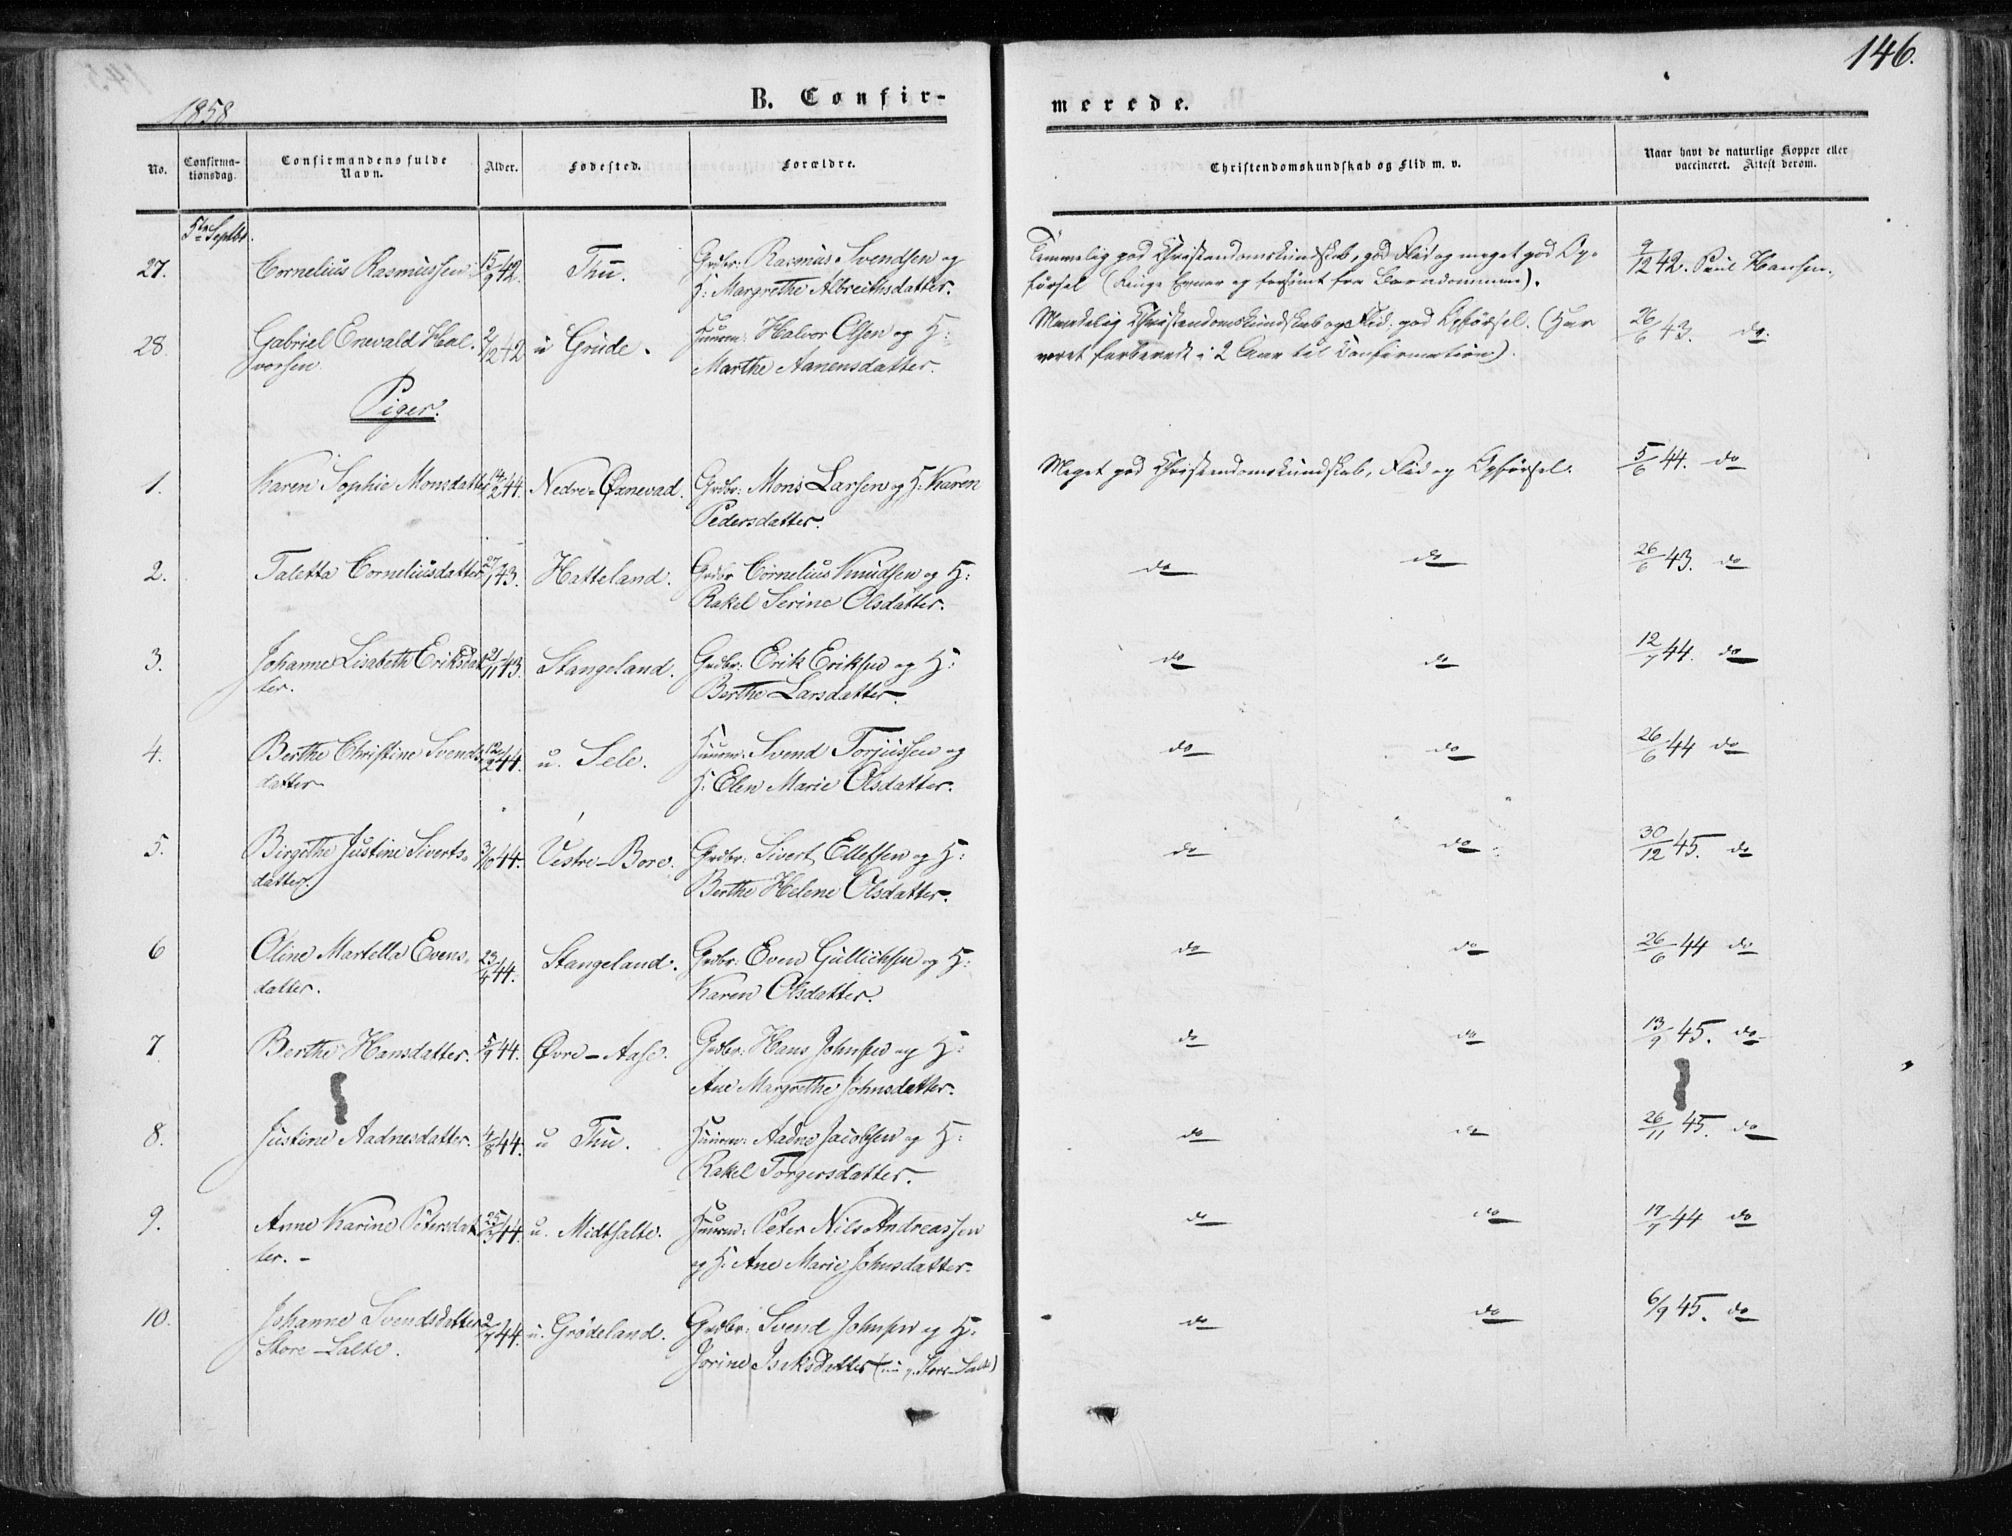 146.
1858
B. Confir-
merede.
No.
Confirma-
tionsdag.
Confirmandens fulde
Navn.
Alder.
Fødested.
Forældre.
Christendomskundskab og Flid m. v.
Naar havt de naturlige Kopper eller
vaccineret. Attest derom.
5te Septbr.
27. Cornelius Rasmussen 5/9 42. Thu. Grdbr: Rasmus Svendsen og
H: Margrethe Albreithsdatter.
Temmelig god Christendomskundskab, god Flid og meget god Op-
førsel (Ringe Evner og forsømt fra Barndommen).
9/12 42. Paul Hansen.
28. Gabriel Enevald Hal- 2/12 42 u Grude. Huusm: Halvor Olsen og H:
vorsen Marthe Aanensdatter.
Maadelig Christendomskundskab og Flid: god Opførsel. (Har
været forberedt i 2 Aar til Confirmation).
26/6 43. do.
Piger.
1. Karen Sophie Monsdatter 14/2 44. Nedre-Øxnevad. Grdbr: Mons Larsen og H: Karen
Pedersdatter.
Meget god Christendomskundskab, Flid og Opførsel. 5/6 44. do
2. Taletta Corneliusdatter 43. Hatteland. Grdbr Cornelius Knudsen og H:
Rakel Serine Olsdatter.
do do 26/6 43. do
3. Johanne Lisabeth Eriksdat- 21/11 43. Stangeland. Grdbr: Erik Eriksen og H:
ter. Berthe Larsdatter.
do do 12/7 44. do
4. Berthe Christine Svends- 12/2 44. u. Sele. Huusm: Svend Torjussen og
datter H: Elen Marie Olsdatter.
do do 26/6 44 do
5. Birgithe Justine Siverts- 3/10 44. Vestre-Bore. Grdbr: Sivert Ellefsen og H:
datter. Berthe Helene Olsdatter.
do do 30/12 45. do
6 Oline Martella Evens- 23/4 44. Stangeland. Grdbr: Even Gullichsen og H:
datter. Karen Olsdatter.
do do 26/6 44 do
7 Berthe Hansdatter. 5/9 44. Øvre-Aase. Grdbr: Hans Johnsen og H:
Ane Margrethe Johnsdatter.
do do 13/9 45. do
8. Justine Aadnesdatter. 4/8 44. u Thu. Huusm: Aadne Jacobsen og H:
Rakel Torgersdatter.
do do 26/11 45. do
9. Anne Karine Petersdat- 25/3 44. u. Midtsalte. Huusm: Peter Nils Andreassen
ter. og H: Ane Marie Johnsdatter.
do do 17/7 44 do
10. Johanne Svendsdatter 2/7 44. u. Grødeland. Grdbr: Svend Johnsen og H:
Store-Salte. Jorine Isaksdatter ( Store-Salte)
do do 6/9 45. do